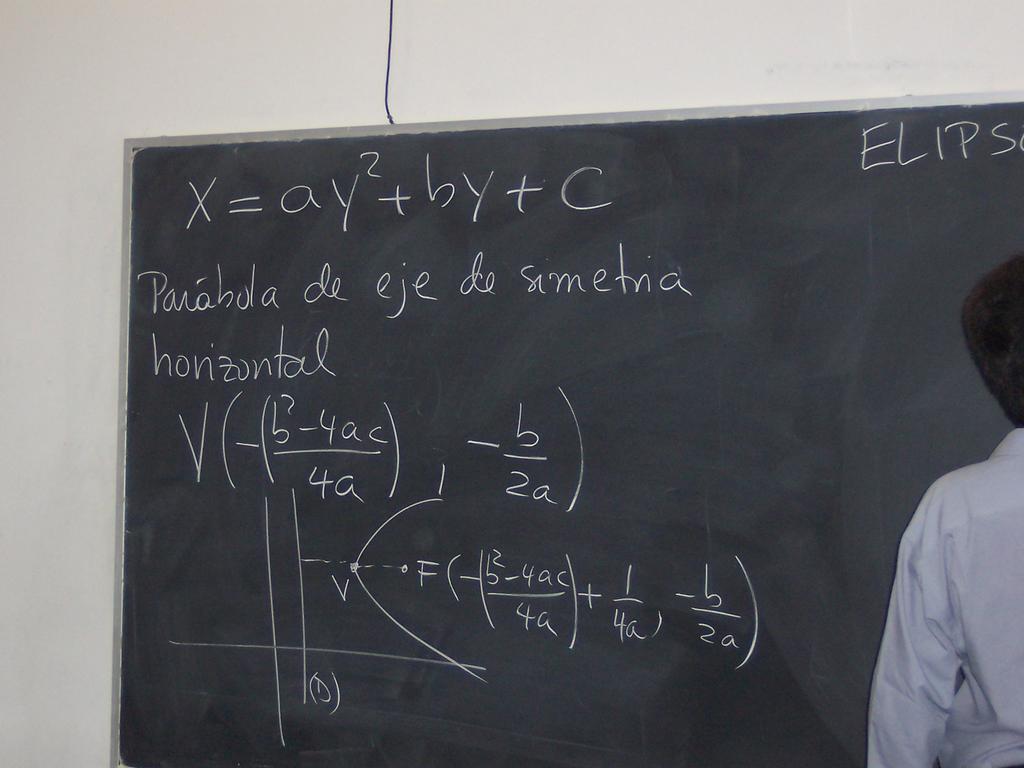 x = ay² + by + c
Parábola de eje de simetria
horizontal
V(-(b²-4ac)/4a), -b/2a)
V
F(-(b²-4ac)/4a) + 1/4a, -b/2a)
(D)
ELIPS